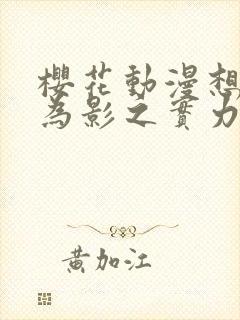 櫻花動漫想
為影之實力
黃加江